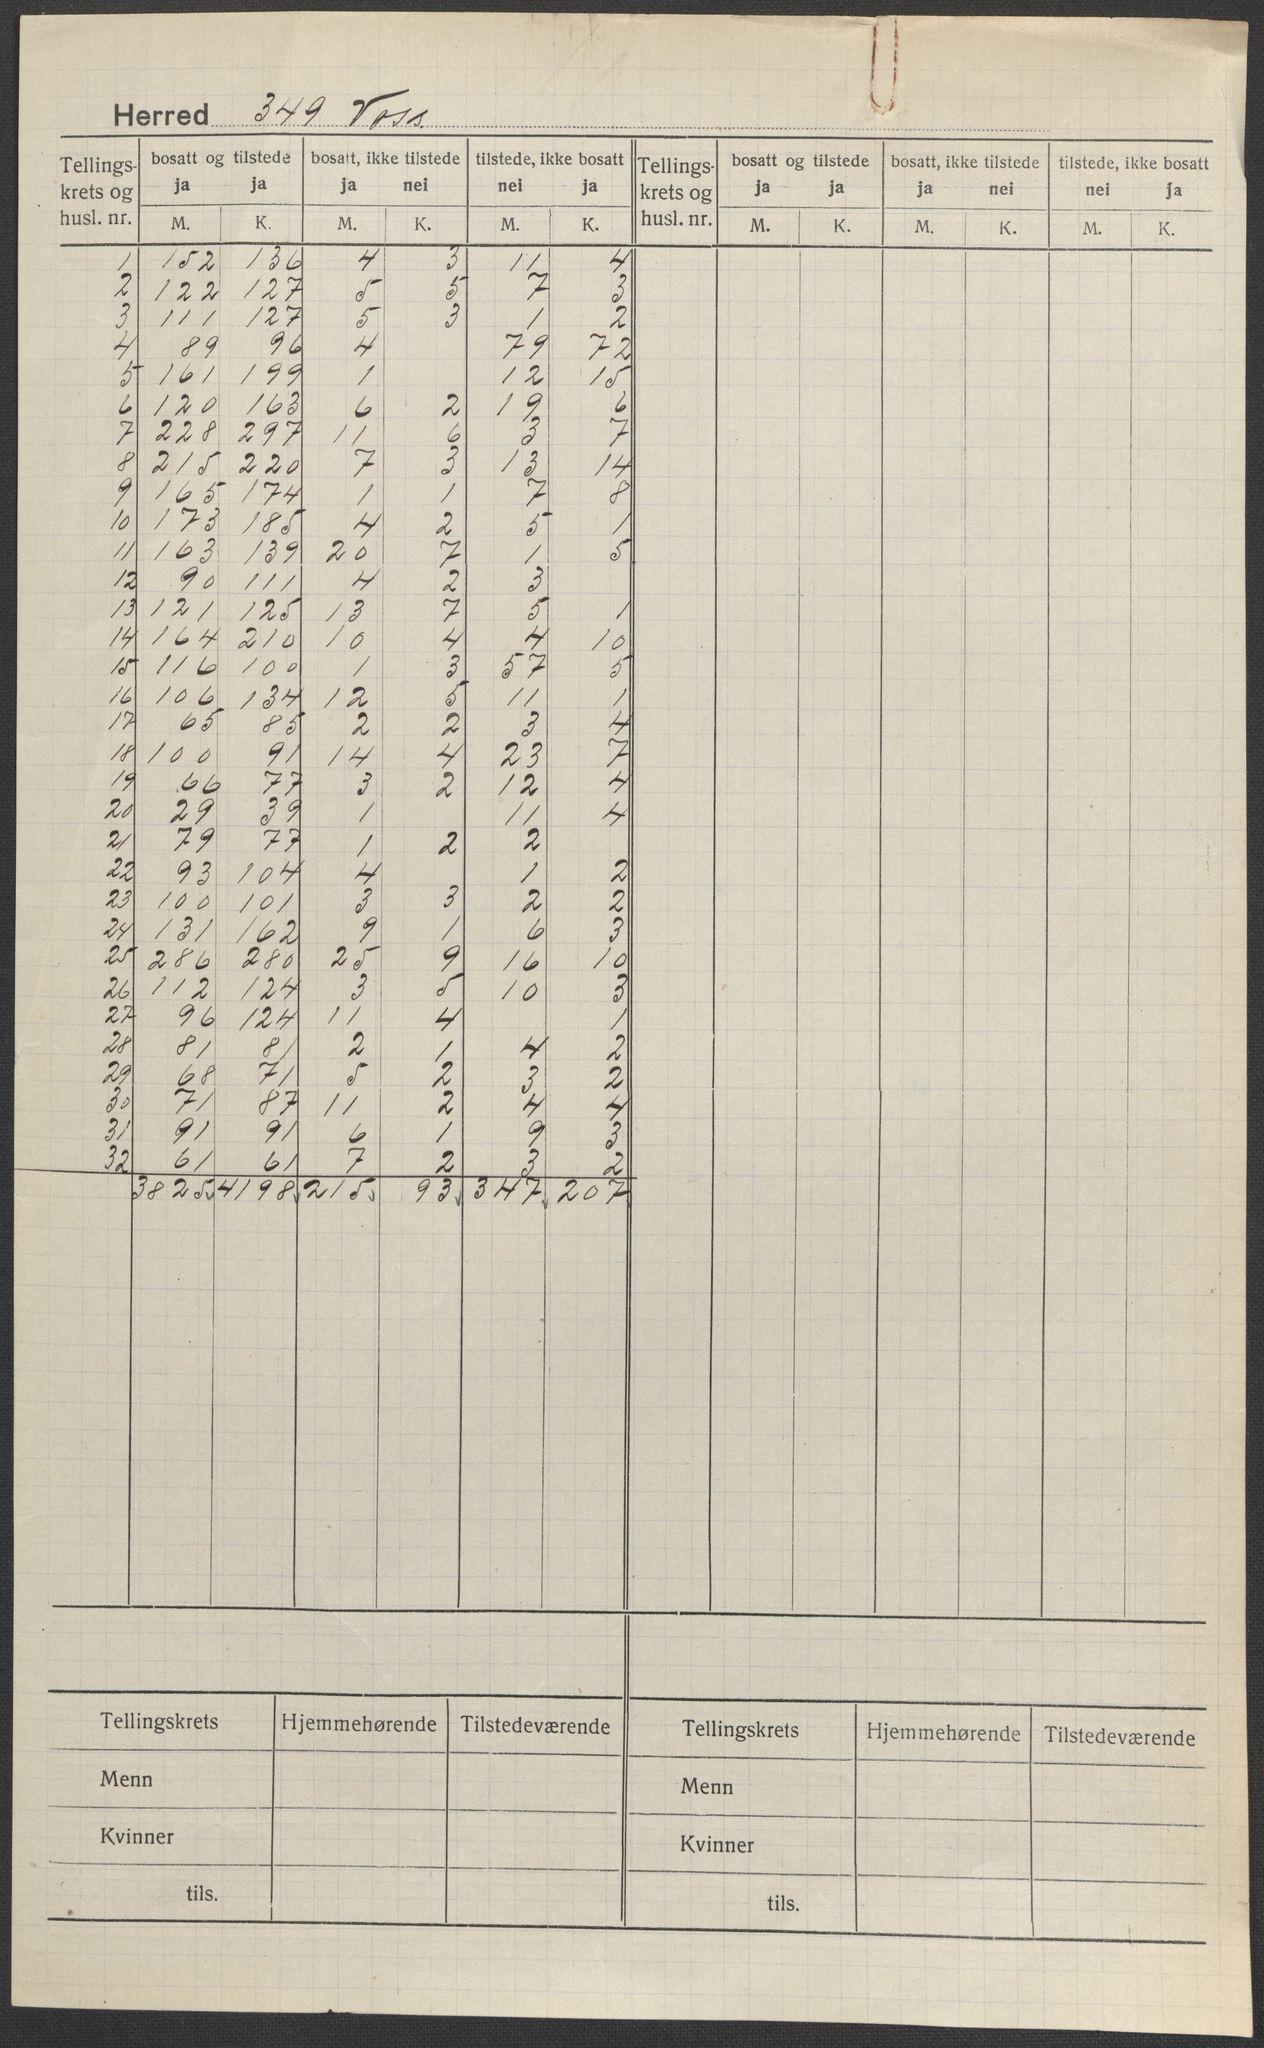 Herred 349 Voss.
Tellings- krets og husl. nr. | bosatt og tilstede | bosatt, ikke tilstede | tilstede, ikke bosatt | Tellings- krets og husl. nr. | bosatt og tilstede | bosatt, ikke tilstede | tilstede, ikke bosatt
ja ja | ja nei | nei ja | ja ja | ja nei | nei ja
M. K. M. K. M. K. M. K. M. K. M. K.
1 152 136 4 3 11 4
2 122 127 5 5 7 3
3 111 127 5 3 1 2
4 89 96 4 79 72
5 161 199 1 12 15
6 120 163 6 2 19 6
7 228 297 11 6 3 7
8 215 220 7 3 13 14
9 165 174 1 1 7 8
10 173 185 4 2 5 1
11 163 139 20 7 1 5
12 90 111 4 2 3
13 121 125 13 7 5 1
14 164 210 10 4 4 10
15 116 100 1 3 57 5
16 106 134 12 5 11 1
17 65 85 2 2 3 4
18 100 91 14 4 23 7
19 66 77 3 2 12 4
20 29 39 1 11 4
21 79 77 1 2 2
22 93 104 4 1 2
23 100 101 3 3 2 2
24 131 162 9 1 6 3
25 286 280 25 9 16 10
26 112 124 3 5 10 3
27 96 124 11 4 1
28 81 81 2 1 4 2
29 68 71 5 2 3 2
30 71 87 11 2 4 4
31 91 91 6 1 9 3
32 61 61 7 2 3 2
3825 4198 215 93 347 207
Tellingskrets | Hjemmehørende | Tilstedeværende | Tellingskrets | Hjemmehørende | Tilstedeværende
Menn Menn
Kvinner Kvinner
tils. tils.